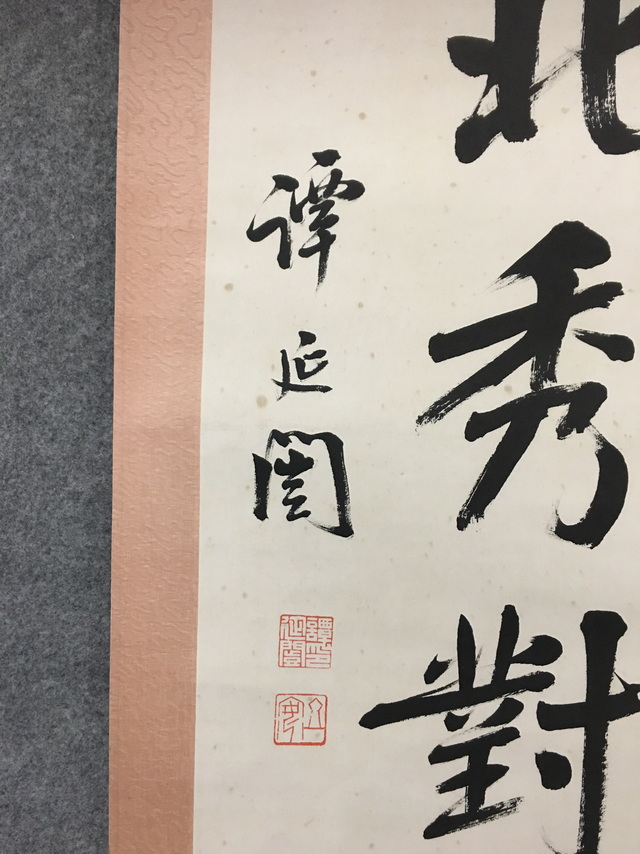 北秀對
譚延闓
譚印延闓